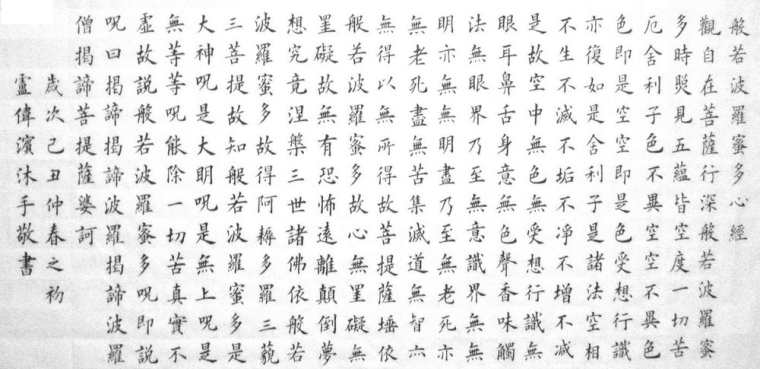 般若波羅蜜多心經
觀自在菩薩行深般若波羅蜜
多時照見五蘊皆空度一切苦
厄舍利子色不異空空不異色
色即是空空即是色受想行識
亦復如是舍利子是諸法空相
不生不滅不垢不凈不增不减
是故空中無色無受想行識無
眼耳鼻舌身意無色聲香味觸
法無眼界乃至無意識界無無
明亦無無明盡乃至無老死亦
無老死盡無苦集滅道無智亦
無得以無所得故菩提薩埵依
般若波羅蜜多故心無罣礙無
罣礙故無有恐怖遠離顛倒夢
想究竟涅槃三世諸佛依般若
波羅蜜多故得阿耨多羅三藐
三菩提故知般若波羅蜜多是
大神呪是大明呪是無上呪是
無等等呪能除一切苦真實不
虛故說般若波羅蜜多呪即說
呪曰揭諦揭諦波羅揭諦波羅
僧揭諦菩提薩婆訶
歲次己丑仲春之初
靈偉濱沐手敬書